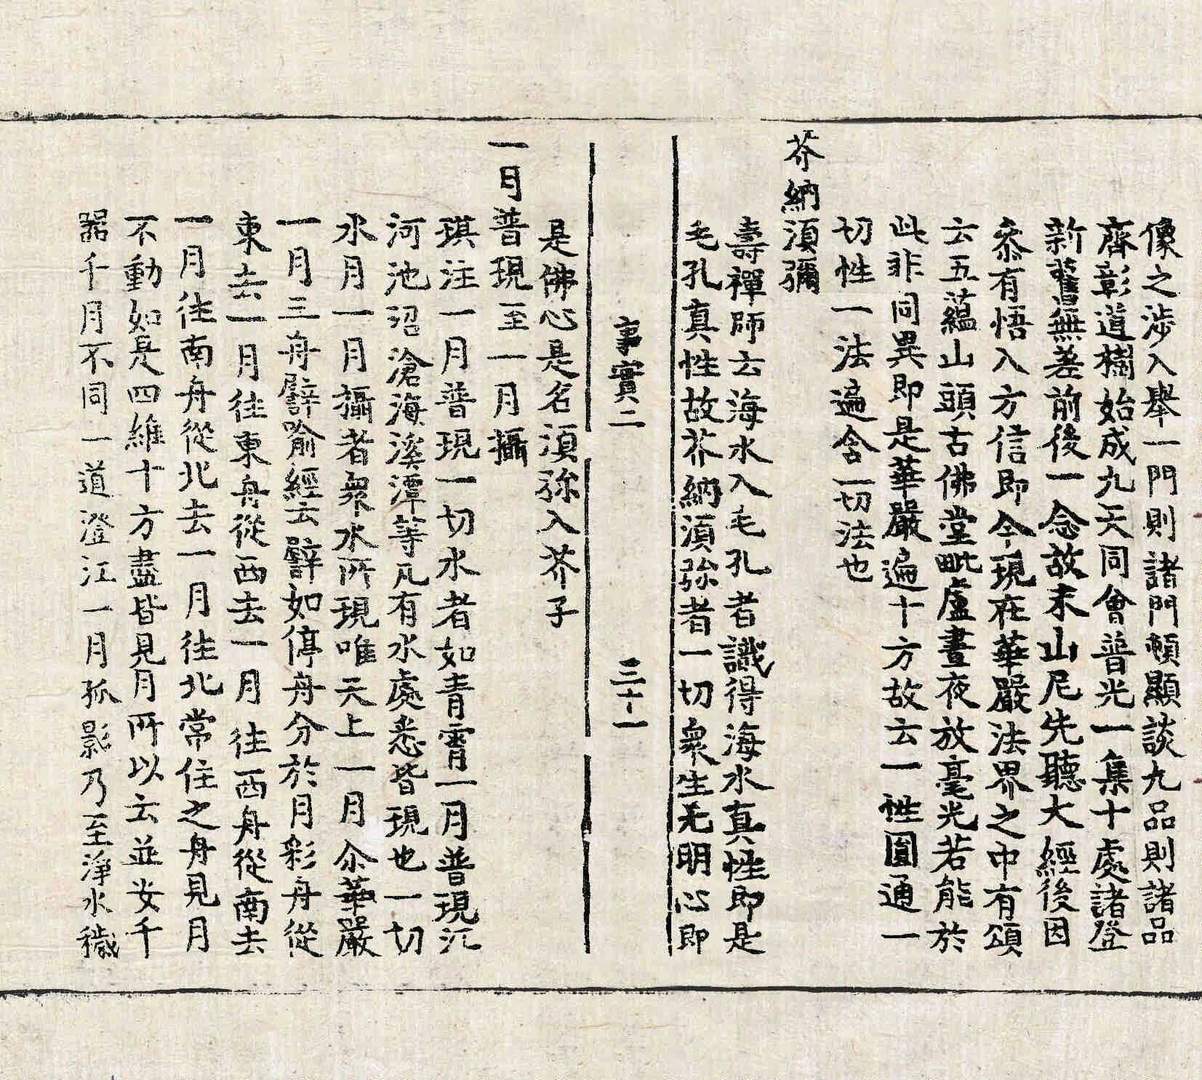 像之渉入舉一門則諸門頓顯談九品則諸品
齊彰道樹始成九天同會普光一集十處諸登
新舊無差前後一念故末山尼先聽大經後因
叅有悟入方信即今現在華嚴法界之中有頌
云五蘊山頭古佛堂毗盧晝夜放毫光若能於
此非同異即是華嚴遍十方故云一性圓通一
切性一法遍含一切法也
芥納湏彌
壽禪師云海水入毛孔者識得海水真性即是
毛孔真性故芥納湏弥者一切衆生无明心即
事實二
三十一
是佛心是名湏弥入芥子
一月普現至一月攝
琪注一月普現一切水者如青霄一月普現江
河池沼滄海溪潭等凡有水處悉皆現也一切
水月一月攝者衆水所現唯天上一月尒華嚴
一月三舟譬喻經云譬如停舟分於月彩舟從
東去一月往東舟從西去一月往西舟從南去
一月往南舟從北去一月往北常住之舟見月
不動如是四維十方盡皆見月所以云並安千
器千月不同一道澄江一月孤影乃至淨水穢